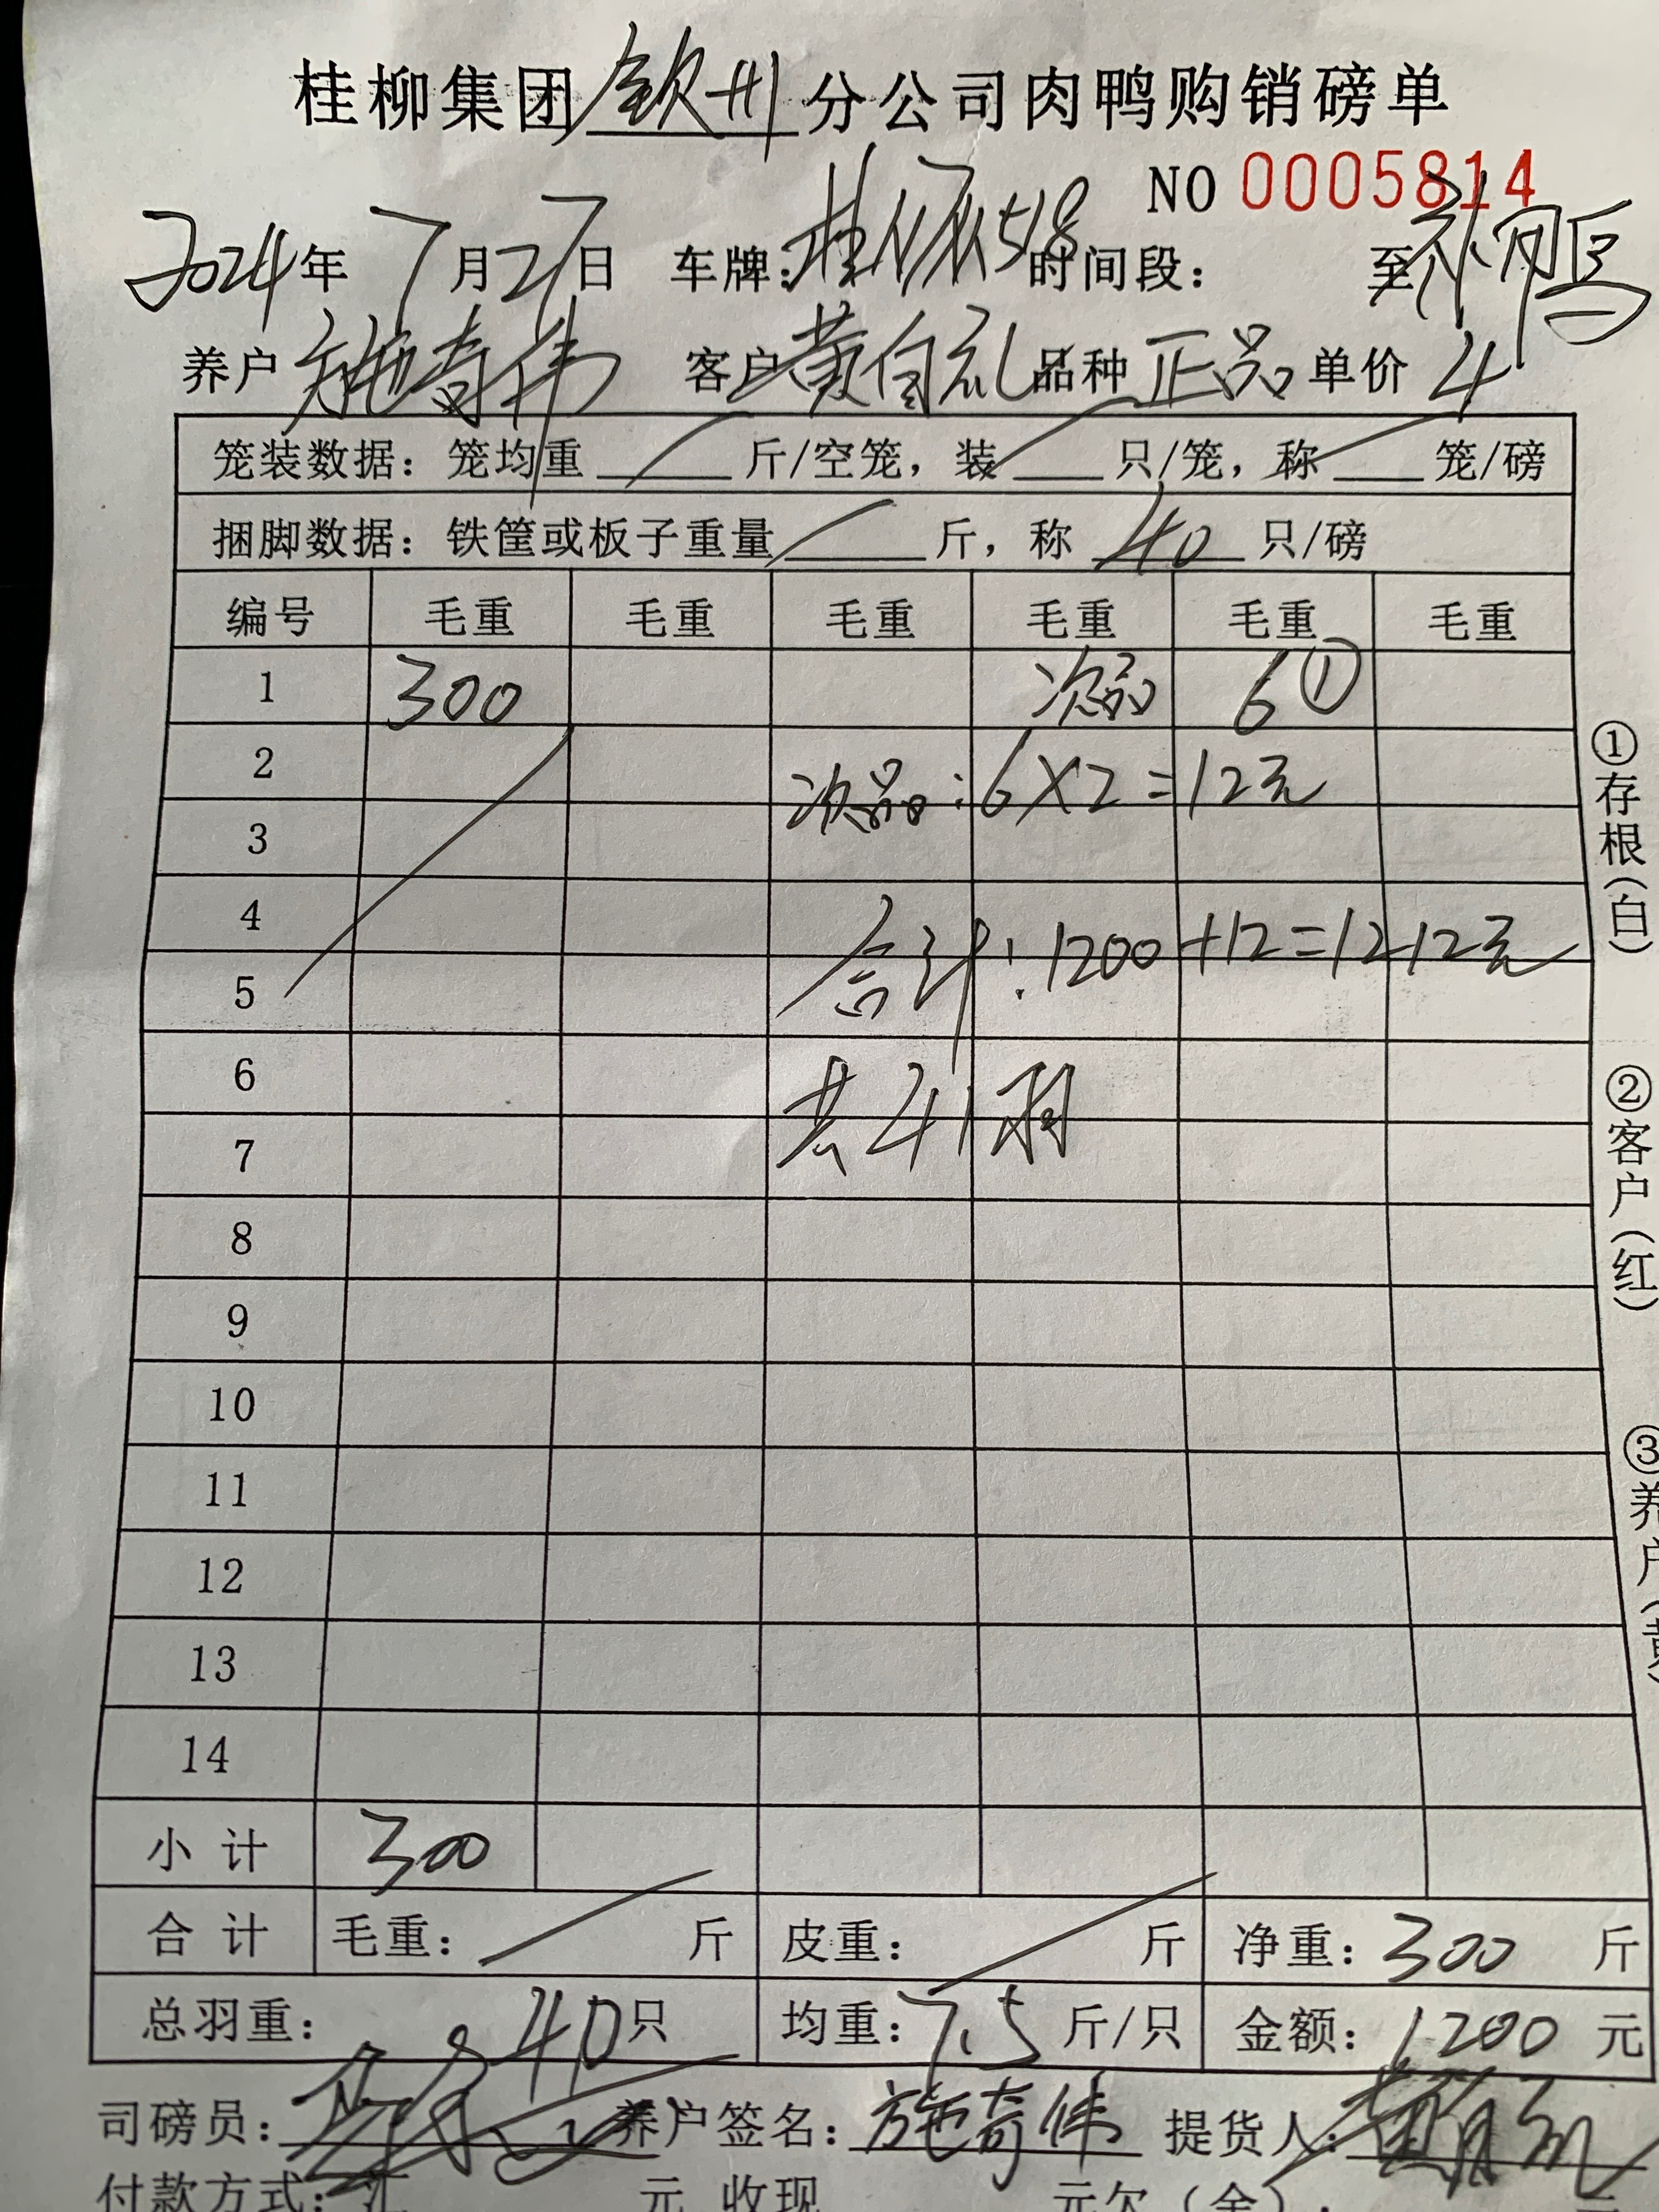 桂柳集团钦州分公司肉鸭购销磅单
NO 0005814
2024年7月27日 车牌:桂 518 时间段: 至 鸭
养户 施奇伟 客户 黄自礼 品种 正品 单价 4
笼装数据:笼均重 / 斤/空笼,装 / 只/笼,称 / 笼/磅
捆脚数据:铁筐或板子重量 / 斤,称 40 只/磅
编号 毛重 毛重 毛重 毛重 毛重 毛重
1 300 次品 6 ①
2 次品:6×2=12元
3
4 合计:1200+12=1212元
5
6 共41羽
7
8
9
10
11
12
13
14
小计 300
合计 毛重: / 斤 皮重: / 斤 净重:300 斤
总羽重: 40只 均重:7.5 斤/只 金额:1200 元
司磅员: 养户签名:施奇伟 提货人:
付款方式:汇 元 收现 元欠(余):
①存根(白)
②客户(红)
③养户(黄)